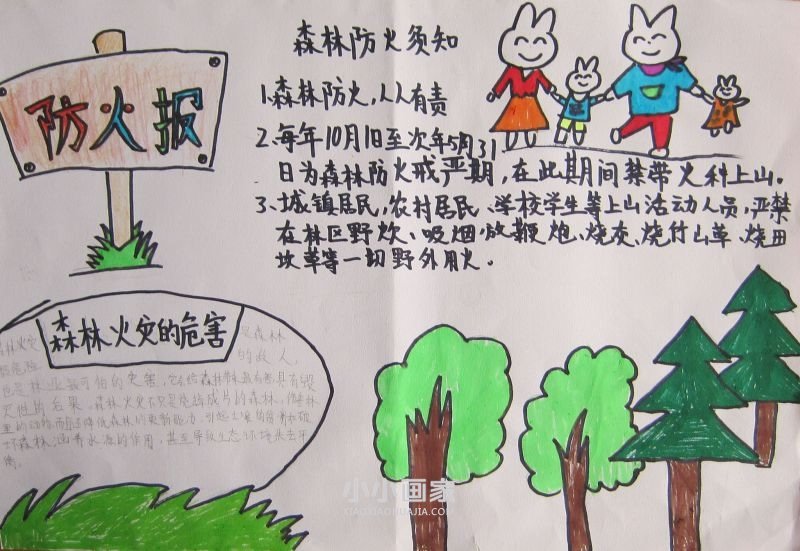 防火报
森林防火须知
1.森林防火,人人有责
2.每年10月1日至次年5月31
日为森林防火戒严期,在此期间禁带火种上山。
3、城镇居民,农村居民、学校学生等上山活动人员,严禁
在林区野炊、吸烟,放鞭炮、烧灰、烧竹山草、烧田
坎草等一切野外用火。
森林火灾的危害
森林火灾 是森林
最危险 的敌人,
也是林业最可怕的灾害,它会给森林带来最有害具有毁
灭性的后果。森林火灾不只是烧毁成片的森林,伤害林
里的动物,而且还降低森林的更新能力,引起土壤的贫瘠和破
坏森林涵养水源的作用,甚至导致生态环境失去平
衡。
小小画家
XIAOXIAOHUAJIA.COM